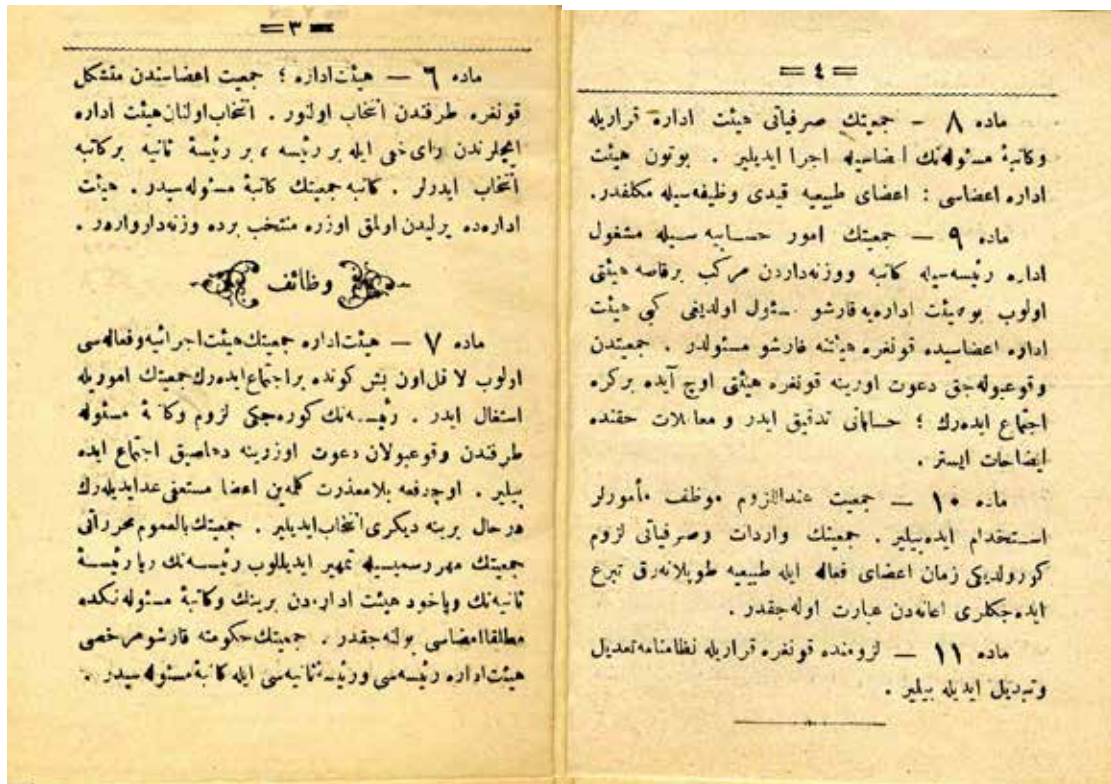 = ٣ =
ماده ٦ — هيئت اداره ؛ جمعيت اعضاسندن متشكل
قونغره طرفندن انتخاب اولنور . انتخاب اولنان هيئت اداره
ايچلرندن رأی خفی ايله بر رئيسه ، بر رئيسهٔ ثانيه بركاتبه
انتخاب ايدرلر . كاتبه جمعيتك كاتبهٔ مسئوله‌سيدر . هيئت
اداره‌ده يرليدن اولمق اوزره منتخب برده وزنه‌دار واردر .
وظائف
ماده ٧ — هيئت اداره جمعيتك هيئت اجرائيه و فعاله‌سی
اولوب لا اقل اون بش كونده بر اجتماع ايده‌رك جمعيتك اموريله
اشتغال ايدر . رئيسه‌نك كوره‌جكی لزوم وكاتبهٔ مسئوله
طرفندن وقوعبولان دعوت اوزرينه دها صيق اجتماع ايده
بيلير . اوچ دفعه بلا معذرت كلمه‌ين اعضا مستعفی عد ايديله‌رك
درحال يرينه ديكری انتخاب ايديلير . جمعيتك بالعموم محرراتی
جمعيتك مهر رسميسيله تمهير ايديللوب رئيسه‌نك ويا رئيسهٔ
ثانيه‌نك وياخود هيئت اداره‌دن برينك وكاتبهٔ مسئوله‌نكده
مطلقا امضاسی بولنه‌جقدر . جمعيتك حكومته قارشو مرخصی
هيئت اداره رئيسه‌سی ورئيسهٔ ثانيه‌سی ايله كاتبهٔ مسئوله‌سيدر .
= ٤ =
ماده ٨ — جمعيتك صرفياتی هيئت اداره قراريله
وكاتبهٔ مسئوله‌نك امضاسيله اجرا ايديلير . بوتون هيئت
اداره اعضاسی : اعضای طبيعيه قيدی وظيفه‌سيله مكلفدر .
ماده ٩ — جمعيتك امور حسابيه سيله مشغول
اداره رئيسه‌سيله كاتبه ووزنه‌داردن مركب برقاصه هيئتی
اولوب بو هيئت اداره‌يه قارشو مسئول اولديغی كبی هيئت
اداره اعضاسيده قونغره هيئتنه قارشو مسئولدر . جمعيتدن
وقوعبوله‌جق دعوت اوزرينه قونغره هيئتی اوچ آيده بركره
اجتماع ايده‌رك ؛ حساباتی تدقيق ايدر و معاملات حقنده
ايضاحات ايستر .
ماده ١٠ — جمعيت عنداللزوم موظف مأمورلر
استخدام ايده‌بيلير . جمعيتك واردات وصرفياتی لزوم
كورولديكی زمان اعضای فعاله ايله طبيعيه طوپلانه‌رق تبرع
ايده‌جكلری اعانه‌دن عبارت اوله‌جقدر .
ماده ١١ — لزومنده قونغره قراريله نظامنامه تعديل
وتبديل ايديله بيلير .